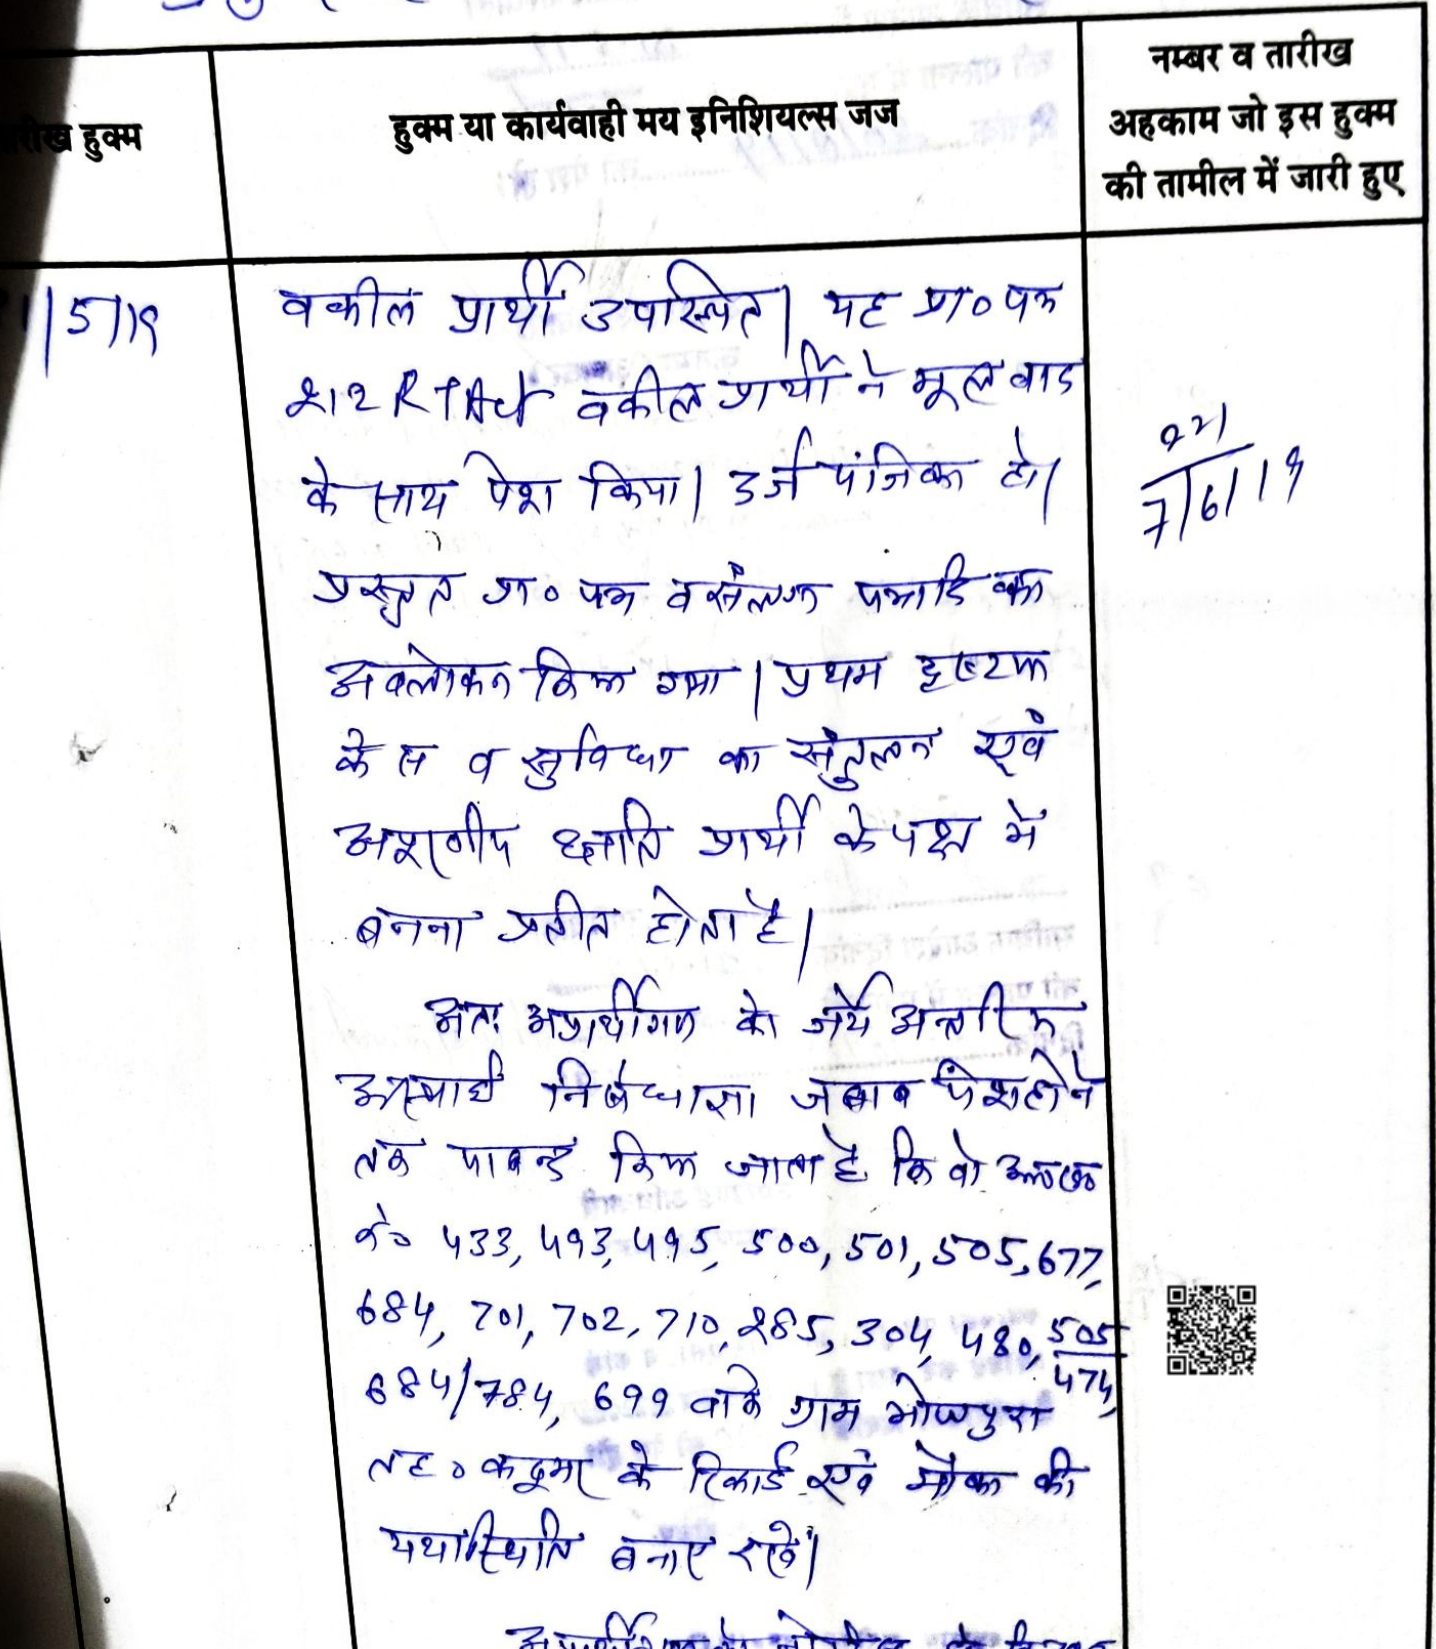 तारीख हुक्म
हुक्म या कार्यवाही मय इनिशियल्स जज
नम्बर व तारीख
अहकाम जो इस हुक्म
की तामील में जारी हुए
/5/19
वकील प्रार्थी उपस्थित। यह प्रा० पत्र
212 RTAct वकील प्रार्थी ने मूल वाद
के साथ पेश किया। दर्ज पंजिका हो।
प्रस्तुत प्रा० पत्र व संलग्न पत्रादि का
अवलोकन किया गया। प्रथम दृष्टया
केस व सुविधा का संतुलन एवं
अपूरणीय क्षति प्रार्थी के पक्ष में
बनना प्रतीत होता है।
अतः अप्रार्थीगण को जर्ये अन्तरिम
अस्थाई निषेधाज्ञा जबाब पेश होने
तक पाबन्द किया जाता है कि वो
433, 493, 495, 500, 501, 505, 677,
684, 701, 702, 710, 285, 304, 480, 505/474,
684/784, 699 वाके ग्राम भोजपुरा
तह० कठूमर के रिकार्ड एवं मौका की
यथास्थिति बनाए रखें।
221
7/6/19